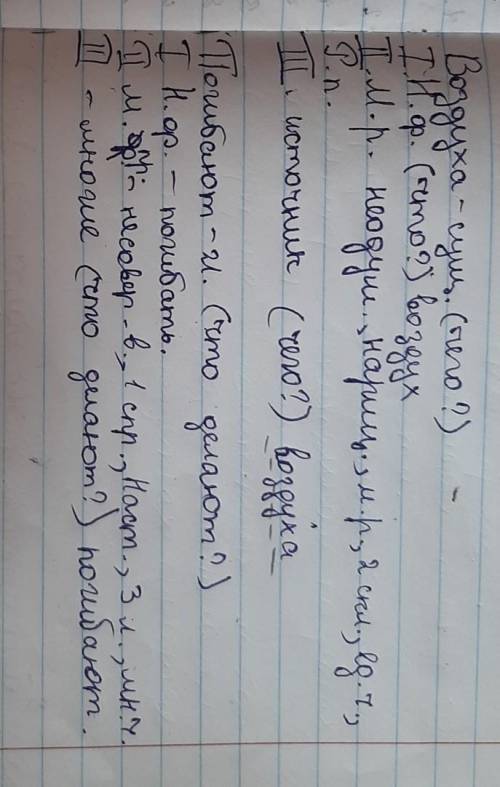 Воздуха - сущ. (чего?)
I. Н.ф. (что?) воздух
II. М.р. неодуш., нариц., м.р, 2 скл., ед.ч,
Р.п.
III. источник (чего?) воздуха
Погибают - г. (что делают?)
I Н.ф. - погибать.
II М. - несовер - в., 1 спр., Наст., 3 л., мн.ч.
III - многие (что делают?) погибают.